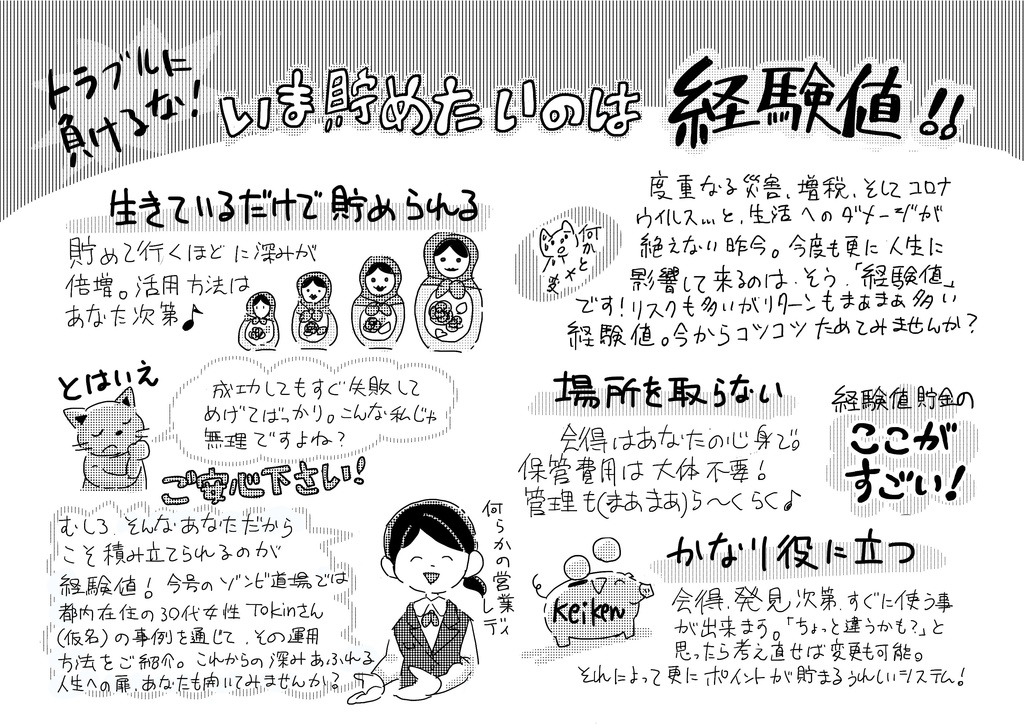 トラブルに
負けるな!
いま貯めたいのは
経験値!!
度重なる災害、増税、そしてコロナ
ウイルス…と、生活へのダメージが
絶えない昨今。今度も更に人生に
影響して来るのは、そう、「経験値」
です!リスクも多いがリターンもまぁまぁ多い
経験値。今からコツコツためてみませんか?
何かと
生きているだけで貯められる
貯めて行くほどに深みが
倍増。活用方法は
あなた次第♪
とはいえ
成功してもすぐ失敗して
めげてばっかり。こんな私じゃ
無理ですよね?
ご安心下さい!
むしろ、そんなあなただから
こそ積み立てられるのが
経験値!今号のゾンビ道場では
都内在住の30代女性Tokinさん
(仮名)の事例を通じて、その運用
方法をご紹介。これからの深みあふれる
人生への扉、あなたも開いてみませんか?
何らかの営業
レディ
経験値貯金の
ここが
すごい!
場所を取らない
会得はあなたの心身で。
保管費用は大体不要!
管理も(まあまあ)ら〜くらく♪
かなり役に立つ
keiken
会得、発見次第、すぐに使う事
が出来ます。「ちょっと違うかも?」と
思ったら考え直せば変更も可能。
それによって更にポイントが貯まるうれしいシステム!